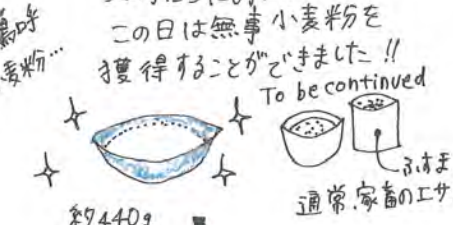 この日は無事小麦粉を
嗚呼
麦粉…
獲得することができました!!
To be continued
ふすま
通常、家畜のエサ
約440g